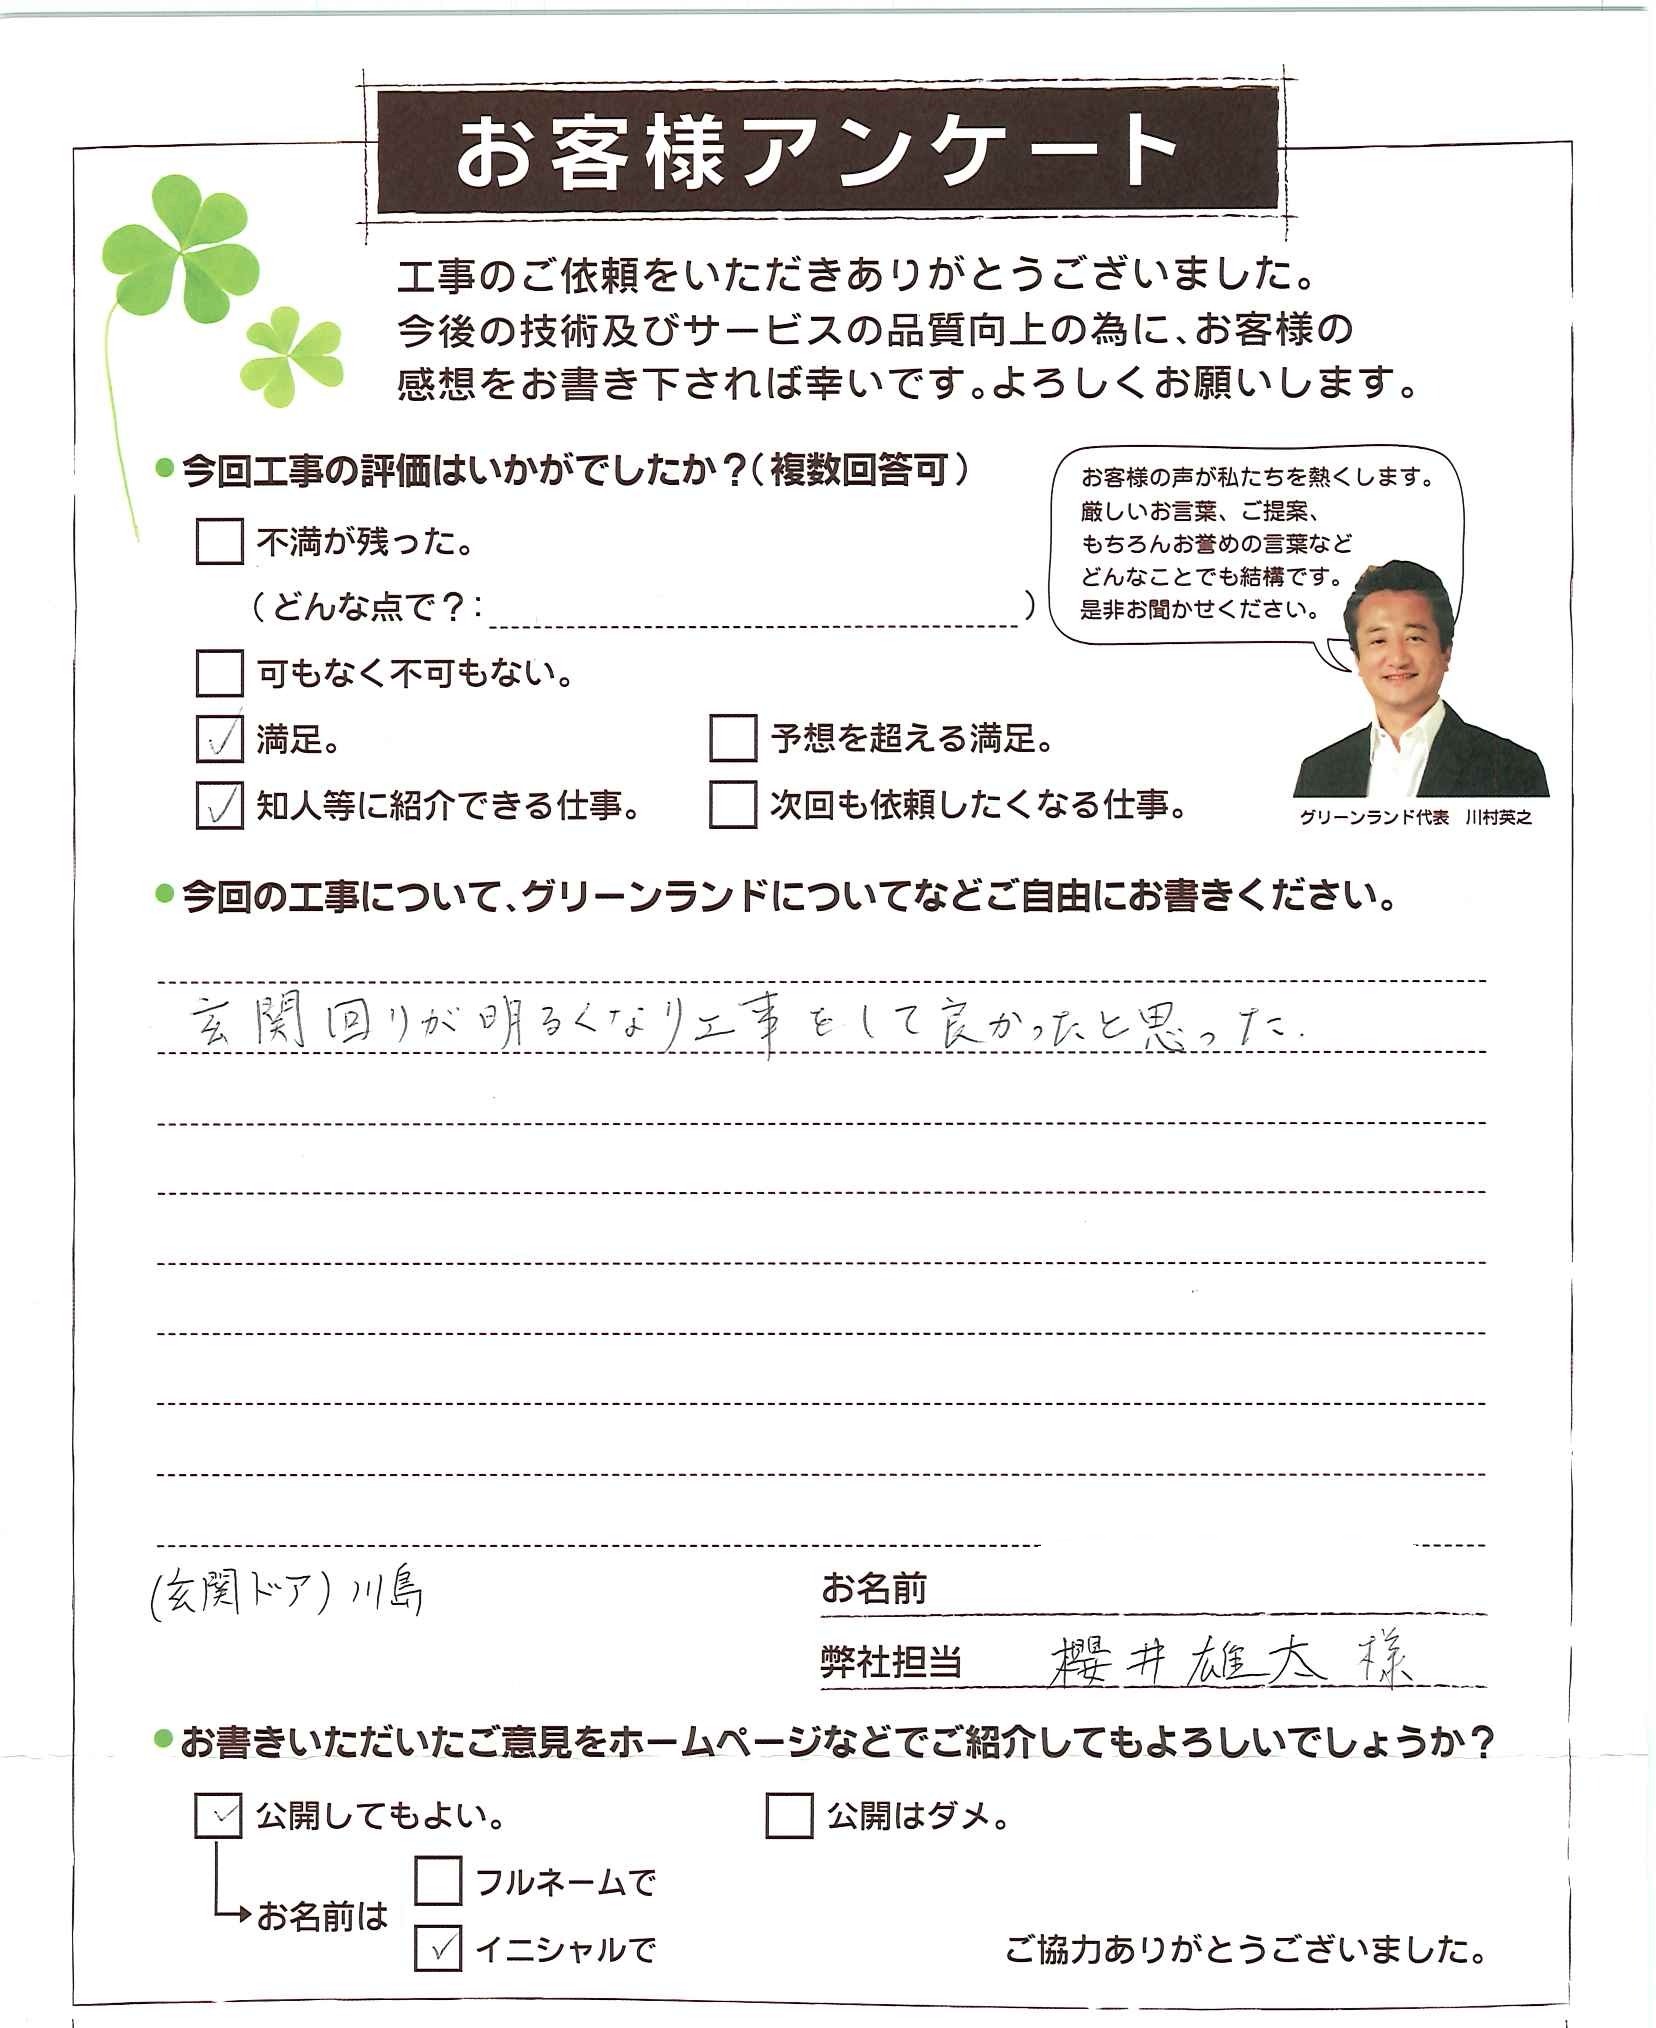 お客様アンケート
工事のご依頼をいただきありがとうございました。
今後の技術及びサービスの品質向上の為に、お客様の
感想をお書き下されば幸いです。よろしくお願いします。
●今回工事の評価はいかがでしたか？（複数回答可）
不満が残った。
（どんな点で？：　）
可もなく不可もない。
✓ 満足。
予想を超える満足。
✓ 知人等に紹介できる仕事。
次回も依頼したくなる仕事。
お客様の声が私たちを熱くします。
厳しいお言葉、ご提案、
もちろんお誉めの言葉など
どんなことでも結構です。
是非お聞かせください。
グリーンランド代表　川村英之
●今回の工事について、グリーンランドについてなどご自由にお書きください。
玄関回りが明るくなり工事をして良かったと思った.
(玄関ドア) 川島
お名前
弊社担当　櫻井雄大 様
●お書きいただいたご意見をホームページなどでご紹介してもよろしいでしょうか？
✓ 公開してもよい。
公開はダメ。
お名前は
フルネームで
✓ イニシャルで
ご協力ありがとうございました。